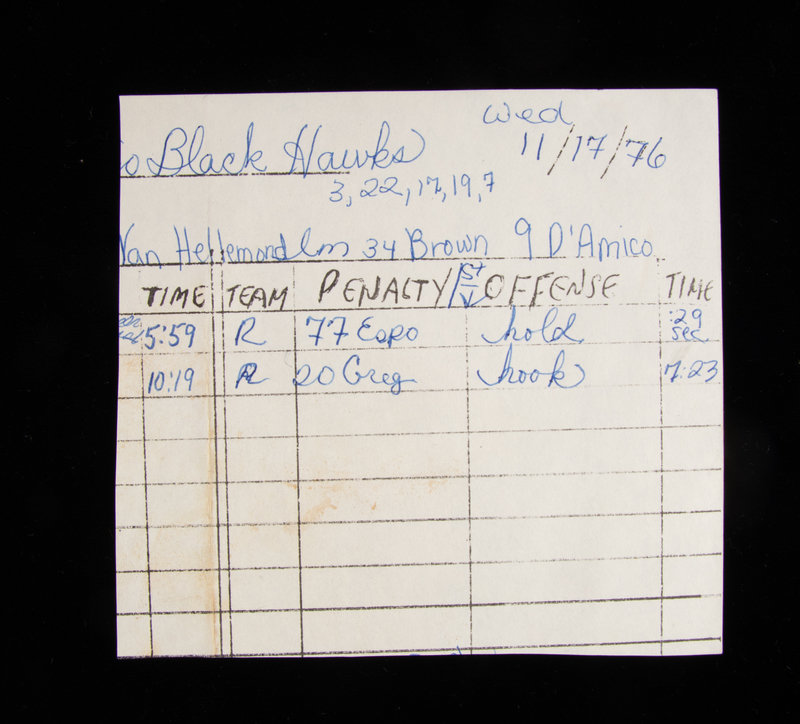 Wed
o Black Hawks 11/17/76
3, 22, 17, 19, 7
Van Hellemond lm 34 Brown 9 D'Amico
TIME TEAM PENALTY/1st OFFENSE TIME
5:59 R 77 Espo hold :29 sec
10:19 R 20 Greg hook 7:23